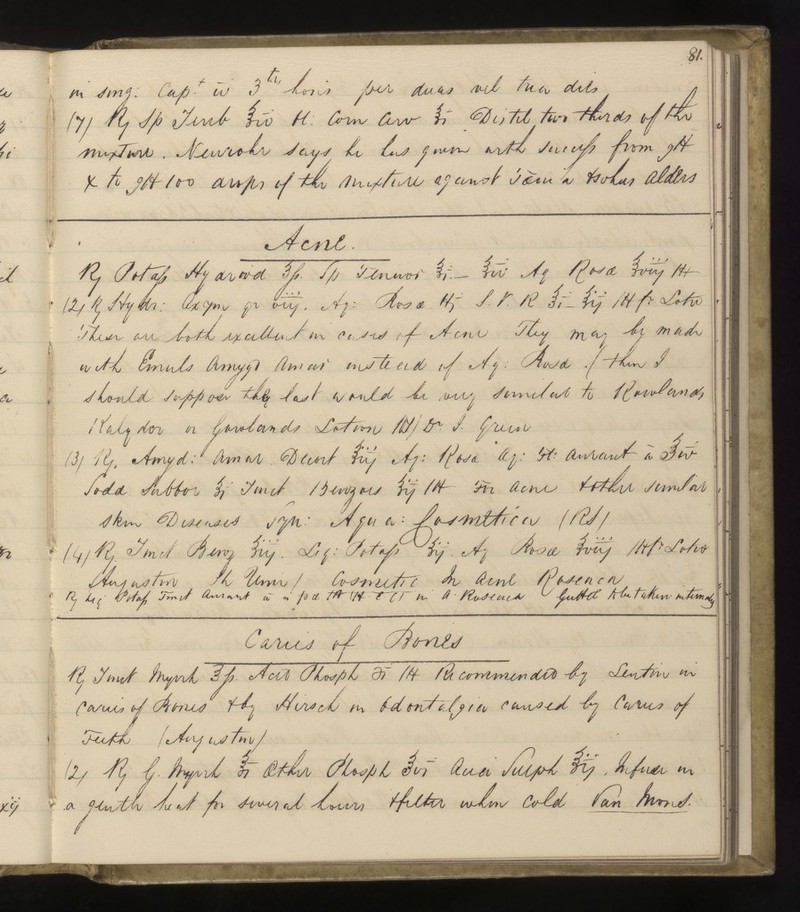 81.
in sing: Capt iv 3th horis per duas vel tres dies
(7) ℞ Sp Tereb ℥iv Ol: Corn Cerv ℥i Distil two thirds of the
mixture. says he has given with success from gtt
X to gtt 100 drops of the mixture against Tænia & other
Acne.
℞ Potass Hydriod ʒß. Sp Tenuior ℥i – ℥iv Aq Rosæ ℥viij M
(2) ℞ Hydr: oxym gr viij. Aq: Rosæ S. V. R ℥i – ℥ij M ft Lotio
These are both excellent in cases of Acne They may by made
with Emuls Amygd Amar instead of Aq: Rosa. (then I
should suppose this last would be very similar to Rowlands
Kalydor or Gowlands Lotion RS) Dr. J. Green
(3) ℞. Amyd: Amar Decort ℥ij Aq: Rosa Aq: Fl: Aurant a ℥iv
Soda Subbor ʒj Tinct Benzoes ʒij M For Acne & other similar
Skin Diseases Syn: Aqua: Cosmetica (RS)
(4) ℞ Tinct Benz ʒiij. Liq: Potass ʒij. Aq Rosæ ℥viij M ft Lotio
Augustin Ph Univ) Cosmetic In Acne Rosacea
℞ Liq Potass Tinct Aurant a in A. Rosacea Guttæ to be taken internaly
Caries of Bones
℞ Tinct Myrrh ℥ß. Acid Phosph ʒi M Recommended by Lentin in
Caries of Bones & by Hirsch in Odontalgia caused by Caries of
Teeth (Augustin)
(2) ℞ G. Myrrh ℥i Æther Phosph ℥vi Acid Sulph ℥ij. Infuse in
a gentle heat for several hours & filter when cold Van Mons.